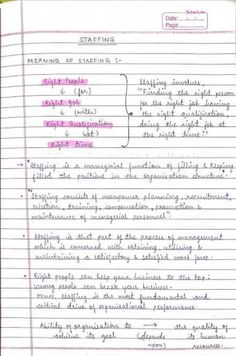 Date: / /
Page:
STAFFING
MEANING OF STAFFING :-
Right People
↓ (for)
Right Job
↓ (with)
Right Qualification
↓ (at)
Right time
Staffing involves,
"Finding the right person
for the right job having
the right qualification,
doing the right job at
the right time."
→ "Staffing is a managerial function of filling & keeping
filled the positions in the organisation structure."
• "Staffing consists of manpower planning, recruitment,
selection, training, compensation, promotion &
maintenance of managerial personnel"
• Staffing is that part of the process of management
which is concerned with obtaining, utilising &
maintaining a satisfactory & satisfied work force.
• Right people can help your business to the top;
wrong people can break your business.
Hence, staffing is the most fundamental and
critical drive of organisational performance.
Ability of organisations to → the quality of
achieve its goal (depends upon) its human
resources.